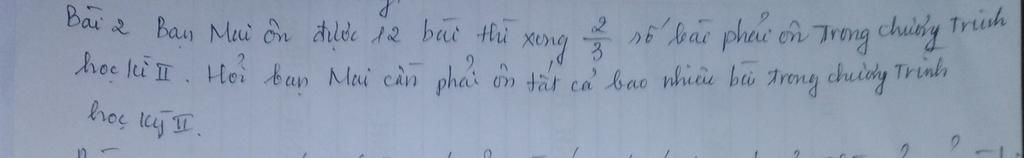 Bài 2 Bạn Mai ôn được 12 bài thì xong 2/3 số bài phải ôn Trong chương Trình
học kì II. Hỏi bạn Mai cần phải ôn tất cả bao nhiêu bài trong chương Trình
học kỳ II.